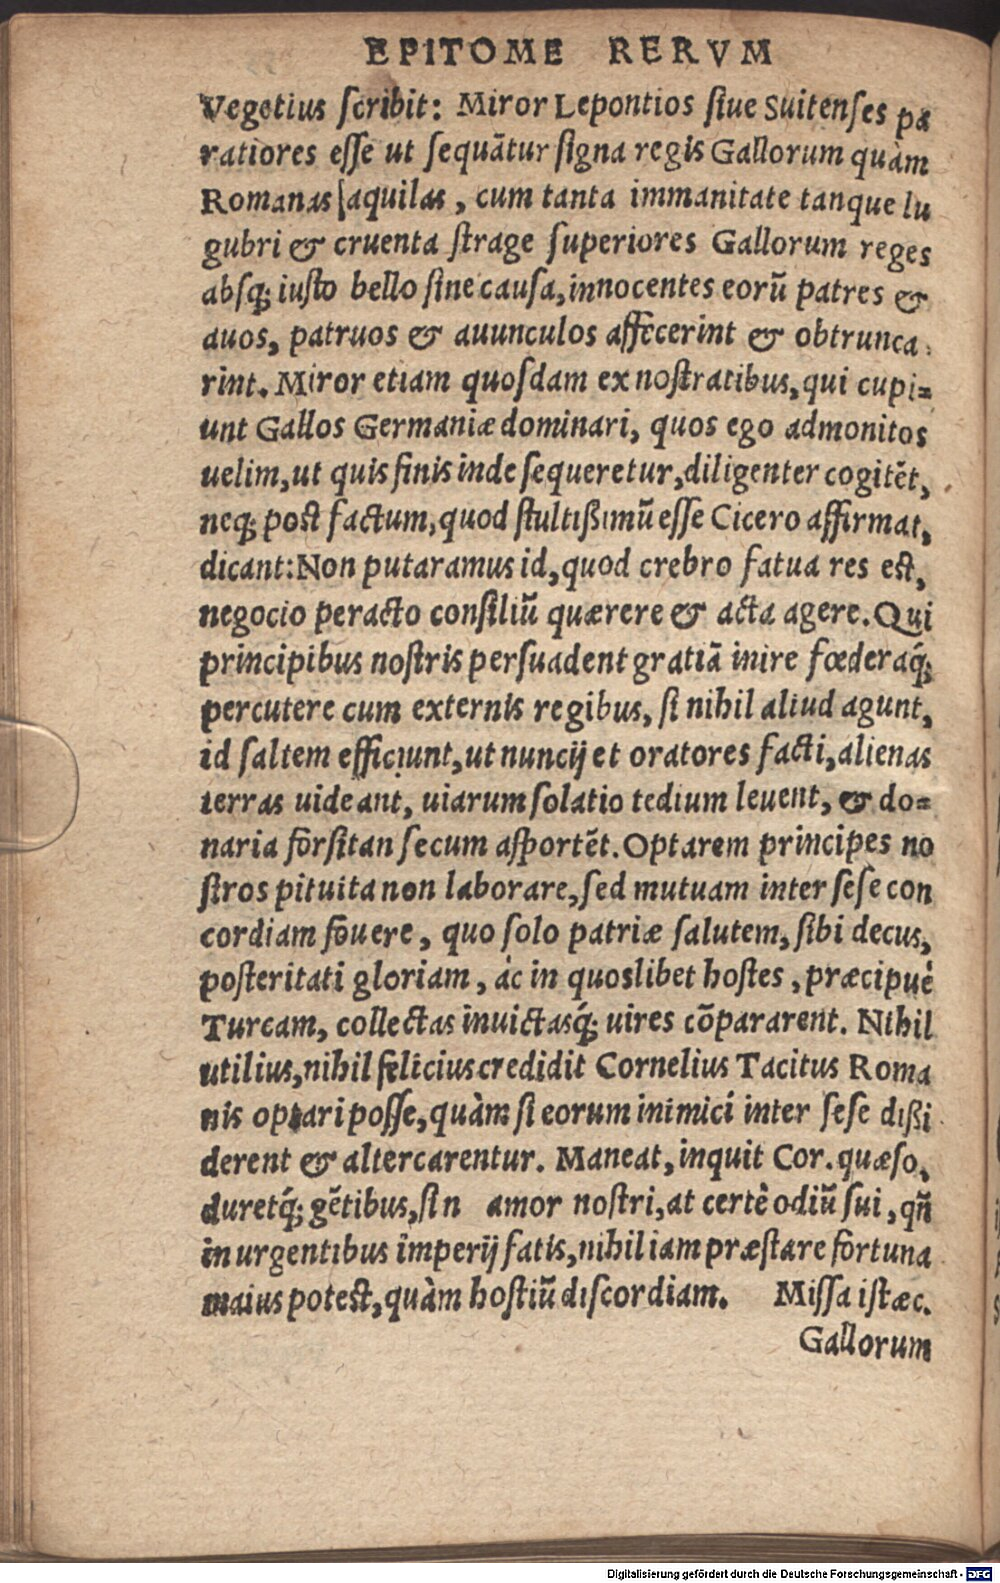 EPITOME RERVM
Vegetius scribit: Miror Lepontios siue Suitenses pa
ratiores esse ut sequãtur signa regis Gallorum quàm
Romanas aquilas, cum tanta immanitate tanque lu
gubri & cruenta strage superiores Gallorum reges
absq; iusto bello sine causa, innocentes eorũ patres &
auos, patruos & auunculos affecerint & obtrunca
rint. Miror etiam quosdam ex nostratibus, qui cupi=
unt Gallos Germaniæ dominari, quos ego admonitos
uelim, ut quis finis inde sequeretur, diligenter cogitẽt,
neq; post factum, quod stultißimũ esse Cicero affirmat,
dicant: Non putaramus id, quod crebro fatua res est,
negocio peracto consiliũ quærere & acta agere. Qui
principibus nostris persuadent gratiã inire fœderaq́;
percutere cum externis regibus, si nihil aliud agunt,
id saltem efficiunt, ut nuncij et oratores facti, alienas
terras uideant, uiarum solatio tedium leuent, & do=
naria forsitan secum asportẽt. Optarem principes no
stros pituita non laborare, sed mutuam inter sese con
cordiam fouere, quo solo patriæ salutem, sibi decus,
posteritati gloriam, ac in quoslibet hostes, præcipuè
Turcam, collectas inuictasq́; uires cõpararent. Nihil
utilius, nihil felicius credidit Cornelius Tacitus Roma
nis optari posse, quàm si eorum inimici inter sese dißi
derent & altercarentur. Maneat, inquit Cor. quæso,
duretq́; gẽtibus, si n amor nostri, at certè odiũ sui, qñ
in urgentibus imperij fatis, nihil iam præstare fortuna
maius potest, quàm hostiũ discordiam. Missa istæc.
Gallorum
Digitalisierung gefördert durch die Deutsche Forschungsgemeinschaft - DFG